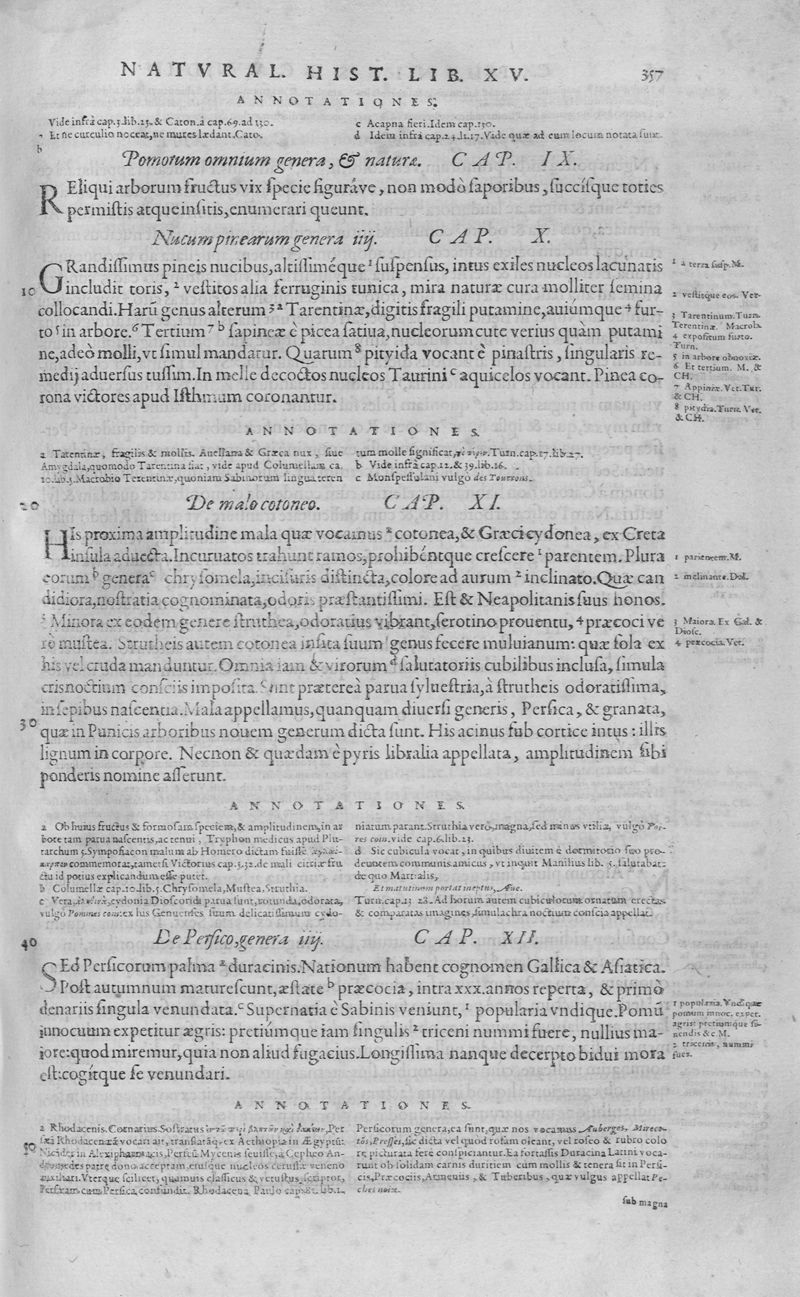 NATVRAL. HIST. LIB. XV. 357
ANNOTATIONES.
Vide infrà cap.3.lib.25.& Caton.à cap.69.ad 130.
Et ne curculio noceat,ne mures lædant.Cato.
b
c Acapna fieri.Idem cap.130.
d Idem infrà cap.24.li.17.Vide quæ ad eum locum notata sunt.
Pomorum omnium genera, & natura. CAP. IX.
REliqui arborum fructus vix specie figuráve, non modò saporibus, succísque toties
permistis atque insitis,enumerari queunt.
Nucum pinearum genera iiij. CAP. X.
GRandissimus pineis nucibus,altissiméque ¹ suspensus, intus exiles nucleos lacunatis
10 includit toris, ² vestitos alia ferruginis tunica, mira naturæ cura molliter semina
collocandi.Harū genus alterum ³ ᵃ Tarentinæ,digitis fragili putamine,auiúmque ⁴ fur-
to ⁵ in arbore.⁶ Tertium ⁷ ᵇ sapineæ è picea satiua,nucleorum cute verius quàm putami
ne,adeò molli,vt simul mandatur. Quarum ⁸ pityida vocant è pinastris, singularis re-
medij aduersus tussim.In melle decoctos nucleos Taurini ᶜ aquicelos vocant. Pinea co-
rona victores apud Isthmum coronantur.
¹ à terra susp.M.
2 vestitque eos. Ver.
3 Tarentinum.Turn.
Terentinæ. Macrob.
4 expositum furto.
Turn.
5 in arbore obnoxiæ.
6 Et tertium. M. &
CH.
7 Appinæ.Vet.Tur.
& CH.
8 pitydia.Turn. Vet.
& CH.
ANNOTATIONES.
a Tarentinæ, fragilis & mollis. Auellana & Græca nux, siue
Amygdala,quomodo Tarentina fiat, vide apud Columellam ca.
10.lib.5.Macrobio Terentinæ,quoniam Sabinorum lingua teren
tum molle significat, Turn.cap.17.lib.27.
b Vide infrà cap.12.& 39.lib.16.
c Monspessulani vulgo des Tourrons.
20 De malo cotoneo. CAP. XI.
HIs proxima amplitudine mala quæ vocamus ᵃ cotonea,& Græci cydonea, ex Creta
insula aduecta.Incuruatos trahunt ramos,prohibéntque crescere ¹ parentem. Plura
eorum ᵇ genera ᶜ chrysomela,incisuris distincta,colore ad aurum ² inclinato.Quæ can
didiora,nostratia cognominata,odoris præstantissimi. Est & Neapolitanis suus honos.
³ Minora ex eodem genere struthea,odoratius vibrant,serotino prouentu, ⁴ præcoci ve
rò mustea. Strutheis autem cotonea insita suum genus fecere muluianum: quæ sola ex
his vel cruda manduntur. Omnia iam & virorum ᵈ salutatoriis cubilibus inclusa, simula
cris noctium consciis imposita.Sunt præterea parua syluestria,à strutheis odoratissima,
in sepibus nascentia.Mala appellamus,quanquam diuersi generis, Persica, & granata,
30 quæ in Punicis arboribus nouem generum dicta sunt. His acinus sub cortice intus : illis
lignum in corpore. Necnon & quædam è pyris libralia appellata, amplitudinem sibi
ponderis nomine asserunt.
1 parientem.M.
2 inclinante.Dal.
3 Maiora. Ex Gal. &
Diosc.
4 præcocia.Vet.
ANNOTATIONES.
a Ob huius fructus & formosam speciem, & amplitudinem,in ar
bore tam parua nascentis,ac tenui, Tryphon medicus apud Plu-
tarchum 5.Sympofiacon malum ab Homero dictam fuisse
commemorat,tametsi Victorius cap.5.12.de mali citriæ fru
ctu id potius explicandum esse putet.
b Columellæ cap.10.lib.5.Chrysomela,Mustea,Struthia.
c Vera, cydonia Dioscoridi parua sunt,rotunda,odorata,
vulgò Pommes coins:ex his Genuenses suum delicatissimum cydo-
niatum parant.Struthia verò,magna,sed minus vtilia, vulgò Poi-
res coin.vide cap.6.lib.23.
d Sic cubicula vocat, in quibus diuitem è dormitorio suo pro-
deuntem communis amicus, vt inquit Manilius lib. 5. salutabat:
de quo Martialis,
Et matutinum portat ineptus, Aue.
Turn.cap.13 28. Ad horum autem cubiculorum ornatum erectas
& comparatas imagines,simulachra noctium conscia appellat.
40 De Persico,genera iiij. CAP. XII.
SEd Persicorum palma ᵃ duracinis.Nationum habent cognomen Gallica & Asiatica.
Post autumnum maturescunt,æstate ᵇ præcocia, intra xxx.annos reperta, & primò
denariis singula venundata.ᶜ Supernatia è Sabinis veniunt, ¹ popularia vndique.Pomū
innocuum expetitur ægris: pretiúmque iam singulis ² triceni nummi fuere, nullius ma-
iore:quod miremur,quia non aliud fugacius.Longissima nanque decerpto bidui mora
est:cogítque se venundari.
1 popularia. Vndique
pomum innoc. expet.
ægris: pretiumque si-
nendis & c M.
2 triceni, nummi
fuer.
ANNOTATIONES.
a Rhodacenis.Cornarius.Sostratus Per
sica Rhodacena vocari ait, translatáq; ex Aethiopia in Ægyptū:
50 Nicander in Alexipharmacis,Persicū Mycenis fuisse,à Cepheo An-
dromedes patre dono acceptam,eiusque nucleos cerussæ veneno
auxiliari.Vterque scilicet, quamuis classicus & vetustus scriptor,
Perseam cum Persica confundit. Rhodacena Paulo cap.81. lib.1.
Persicorum genera,ea sunt,quæ nos vocamus Auberges, Mireco-
tos,Presses,sic dicta vel quod rosam oleant, vel roseo & rubro colo
re picturata ferè conspiciantur.Ea fortassis Duracina Latini voca-
runt ob solidam carnis duritiem cum mollis & tenera sit in Persi-
cis,Præcociis,Armeniis, & Tuberibus, quæ vulgus appellat Pe-
ches noix.
sub magna